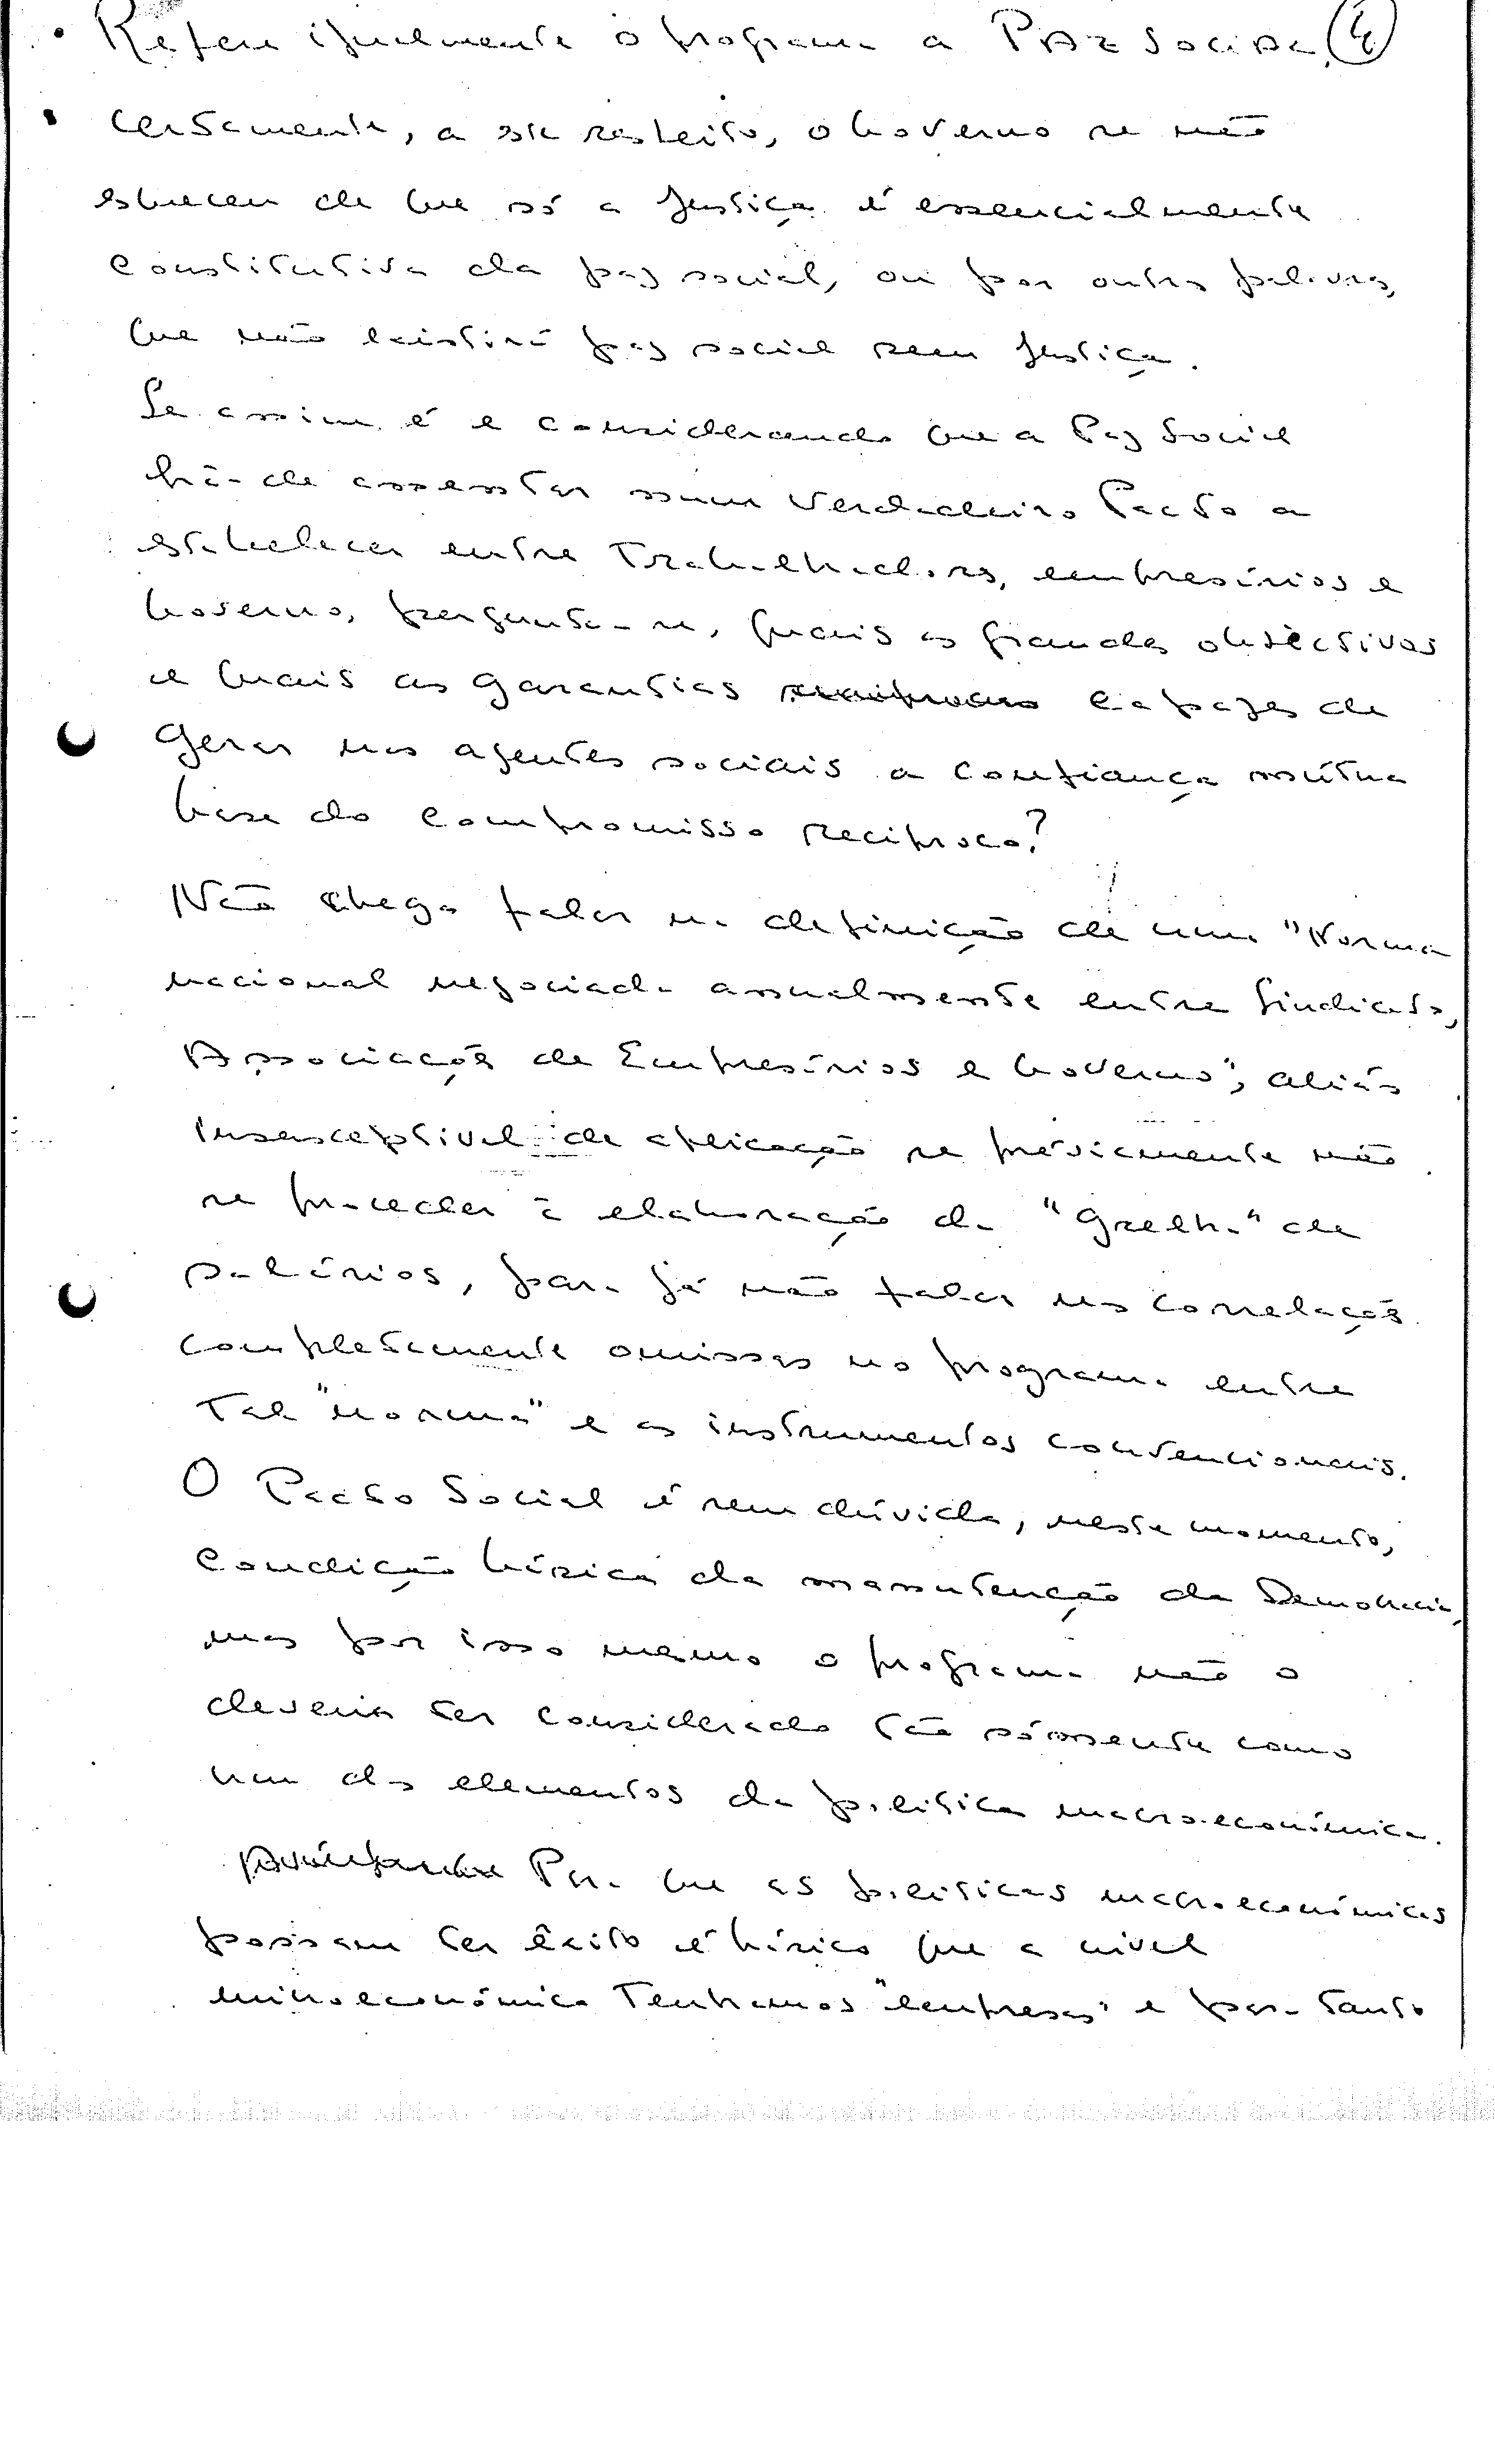 Refere igualmente o programa a PAZ SOCIAL. (4)
Certamente, a este respeito, o Governo se não
esqueceu de que só a Justiça é essencialmente
constitutiva da paz social, ou por outras palavras,
que não existirá paz social sem Justiça.
Se assim é e considerando que a Paz Social
há-de assentar num verdadeiro Pacto a
estabelecer entre Trabalhadores, empresários e
Governo, pergunta-se, quais os grandes objectivos
e quais as garantias capazes de
gerar nos agentes sociais a confiança mútua
base do compromisso recíproco?
Não chega falar na definição de uma "Norma
nacional negociada anualmente entre Sindicatos,
Associações de Empresários e Governo", aliás
insusceptível de aplicação se previamente não
se proceder à elaboração da "Grelha" de
salários, para já não falar nas correlações
completamente omissas no programa entre
Tal "norma" e os instrumentos convencionais.
O Pacto Social é sem dúvida, neste momento,
condição básica da manutenção da Democracia,
mas por isso mesmo o programa não o
deveria ter considerado tão sómente como
um dos elementos da política macro-económica.
Para que as políticas macro-económicas
possam ter êxito é básico que a nível
microeconómico Tenhamos "empresas" e para tanto